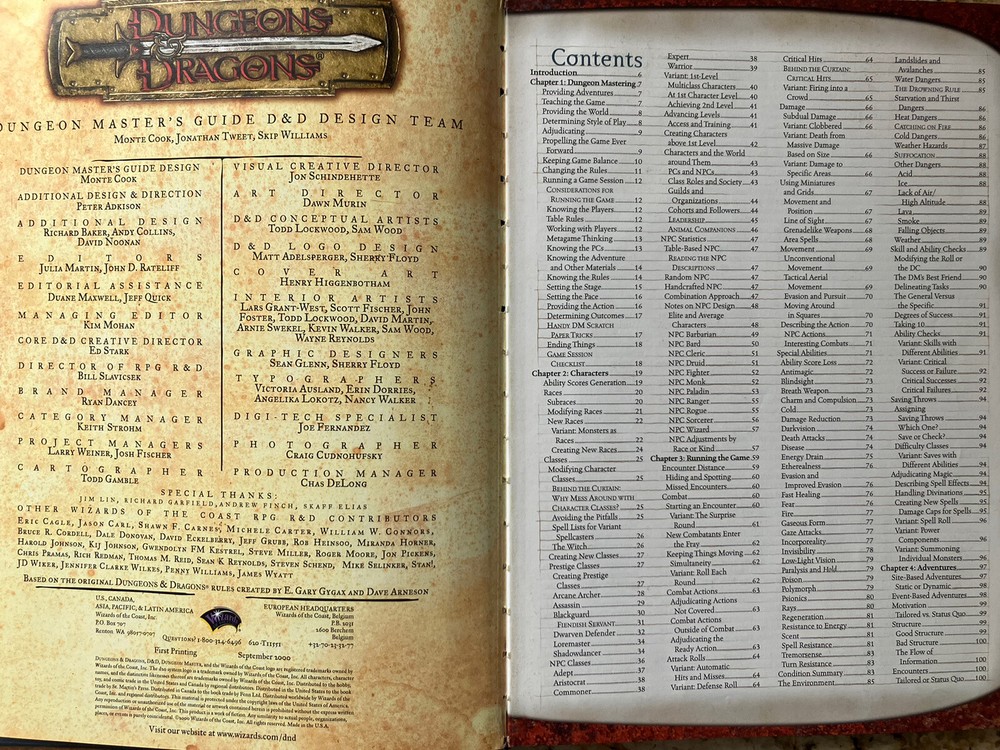 DUNGEONS
&
DRAGONS®
DUNGEON MASTER'S GUIDE D&D DESIGN TEAM
MONTE COOK, JONATHAN TWEET, SKIP WILLIAMS
DUNGEON MASTER'S GUIDE DESIGN
MONTE COOK
ADDITIONAL DESIGN & DIRECTION
PETER ADKISON
ADDITIONAL DESIGN
RICHARD BAKER, ANDY COLLINS,
DAVID NOONAN
EDITORS
JULIA MARTIN, JOHN D. RATELIFF
EDITORIAL ASSISTANCE
DUANE MAXWELL, JEFF QUICK
MANAGING EDITOR
KIM MOHAN
CORE D&D CREATIVE DIRECTOR
ED STARK
DIRECTOR OF RPG R&D
BILL SLAVICSEK
BRAND MANAGER
RYAN DANCEY
CATEGORY MANAGER
KEITH STROHM
PROJECT MANAGERS
LARRY WEINER, JOSH FISCHER
CARTOGRAPHER
TODD GAMBLE
VISUAL CREATIVE DIRECTOR
JON SCHINDEHETTE
ART DIRECTOR
DAWN MURIN
D&D CONCEPTUAL ARTISTS
TODD LOCKWOOD, SAM WOOD
D&D LOGO DESIGN
MATT ADELSPERGER, SHERRY FLOYD
COVER ART
HENRY HIGGENBOTHAM
INTERIOR ARTISTS
LARS GRANT-WEST, SCOTT FISCHER, JOHN
FOSTER, TODD LOCKWOOD, DAVID MARTIN,
ARNIE SWEKEL, KEVIN WALKER, SAM WOOD,
WAYNE REYNOLDS
GRAPHIC DESIGNERS
SEAN GLENN, SHERRY FLOYD
TYPOGRAPHERS
VICTORIA AUSLAND, ERIN DORRIES,
ANGELIKA LOKOTZ, NANCY WALKER
DIGI-TECH SPECIALIST
JOE FERNANDEZ
PHOTOGRAPHER
CRAIG CUDNOHUFSKY
PRODUCTION MANAGER
CHAS DELONG
SPECIAL THANKS:
JIM LIN, RICHARD GARFIELD, ANDREW FINCH, SKAFF ELIAS
OTHER WIZARDS OF THE COAST RPG R&D CONTRIBUTORS
ERIC CAGLE, JASON CARL, SHAWN F. CARNES, MICHELE CARTER, WILLIAM W. CONNORS,
BRUCE R. CORDELL, DALE DONOVAN, DAVID ECKELBERRY, JEFF GRUBB, ROB HEINSOO, MIRANDA HORNER,
HAROLD JOHNSON, KIJ JOHNSON, GWENDOLYN FM KESTREL, STEVE MILLER, ROGER MOORE, JON PICKENS,
CHRIS PRAMAS, RICH REDMAN, THOMAS M. REID, SEAN K REYNOLDS, STEVEN SCHEND, MIKE SELINKER, STAN!,
JD WIKER, JENNIFER CLARKE WILKES, PENNY WILLIAMS, JAMES WYATT
BASED ON THE ORIGINAL DUNGEONS & DRAGONS® RULES CREATED BY E. GARY GYGAX AND DAVE ARNESON
U.S., CANADA,
ASIA, PACIFIC, & LATIN AMERICA
Wizards of the Coast, Inc.
P.O. Box 707
Renton WA 98057-0707
Wizards
EUROPEAN HEADQUARTERS
Wizards of the Coast, Belgium
P.B. 2031
2600 Berchem
Belgium
+32-70-23-32-77
QUESTIONS? 1-800-324-6496 620-T11551
First Printing September 2000
DUNGEONS & DRAGONS, D&D, DUNGEON MASTER, and the Wizards of the Coast logo are registered trademarks owned by
Wizards of the Coast, Inc. The d20 system logo is a trademark owned by Wizards of the Coast, Inc. All characters, character
names, and the distinctive likenesses thereof are trademarks owned by Wizards of the Coast, Inc.
Visit our website at www.wizards.com/dnd
Contents
Introduction 6
Chapter 1: Dungeon Mastering 7
Providing Adventures 7
Teaching the Game 7
Providing the World 8
Determining Style of Play 8
Adjudicating 9
Propelling the Game Ever
Forward 9
Keeping Game Balance 10
Changing the Rules 11
Running a Game Session 12
CONSIDERATIONS FOR
RUNNING THE GAME 12
Knowing the Players 12
Table Rules 12
Working with Players 12
Metagame Thinking 13
Knowing the PCs 13
Knowing the Adventure
and Other Materials 14
Knowing the Rules 14
Setting the Stage 15
Setting the Pace 16
Providing the Action 16
Determining Outcomes 17
HANDY DM SCRATCH
PAPER TRICKS 17
Ending Things 18
GAME SESSION
CHECKLIST 18
Chapter 2: Characters 19
Ability Scores Generation 19
Races 20
Subraces 20
Modifying Races 21
New Races 22
Variant: Monsters as
Races 22
Creating New Races 24
Classes 25
Modifying Character
Classes 25
BEHIND THE CURTAIN:
WHY MESS AROUND WITH
CHARACTER CLASSES? 25
Avoiding the Pitfalls 25
Spell Lists for Variant
Spellcasters 26
The Witch 26
Creating New Classes 27
Prestige Classes 27
Creating Prestige
Classes 27
Arcane Archer 28
Assassin 29
Blackguard 30
FIENDISH SERVANT 31
Dwarven Defender 32
Loremaster 34
Shadowdancer 34
NPC Classes 36
Adept 37
Aristocrat 38
Commoner 38
Expert 38
Warrior 39
Variant: 1st-Level
Multiclass Characters 40
At 1st Character Level 40
Achieving 2nd Level 41
Advancing Levels 41
Access and Training 41
Creating Characters
above 1st Level 42
Characters and the World
around Them 43
PCs and NPCs 43
Class Roles and Society 43
Guilds and
Organizations 44
Cohorts and Followers 44
LEADERSHIP 45
ANIMAL COMPANIONS 46
NPC Statistics 47
Table-Based NPC 47
READING THE NPC
DESCRIPTIONS 47
Random NPC 47
Handcrafted NPC 47
Combination Approach 47
Notes on NPC Design 48
Elite and Average
Characters 48
NPC Barbarian 49
NPC Bard 50
NPC Cleric 51
NPC Druid 51
NPC Fighter 52
NPC Monk 52
NPC Paladin 53
NPC Ranger 55
NPC Rogue 55
NPC Sorcerer 56
NPC Wizard 57
NPC Adjustments by
Race or Kind 57
Chapter 3: Running the Game 59
Encounter Distance 59
Hiding and Spotting 60
Missed Encounters 60
Combat 60
Starting an Encounter 60
Variant: The Surprise
Round 61
New Combatants Enter
the Fray 62
Keeping Things Moving 62
Simultaneity 62
Variant: Roll Each
Round 62
Combat Actions 63
Adjudicating Actions
Not Covered 63
Combat Actions
Outside of Combat 63
Adjudicating the
Ready Action 63
Attack Rolls 64
Variant: Automatic
Hits and Misses 64
Variant: Defense Roll 64
Critical Hits 64
BEHIND THE CURTAIN:
CRITICAL HITS 65
Variant: Firing into a
Crowd 65
Damage 66
Subdual Damage 66
Variant: Clobbered 66
Variant: Death from
Massive Damage
Based on Size 66
Variant: Damage to
Specific Areas 66
Using Miniatures
and Grids 67
Movement and
Position 67
Line of Sight 67
Grenadelike Weapons 68
Area Spells 68
Movement 69
Unconventional
Movement 69
Tactical Aerial
Movement 69
Evasion and Pursuit 70
Moving Around
in Squares 70
Describing the Action 70
NPC Actions 71
Interesting Combats 71
Special Abilities 71
Ability Score Loss 72
Antimagic 72
Blindsight 73
Breath Weapon 73
Charm and Compulsion 73
Cold 73
Damage Reduction 73
Darkvision 74
Death Attacks 74
Disease 74
Energy Drain 75
Etherealness 76
Evasion and
Improved Evasion 76
Fast Healing 76
Fear 76
Fire 77
Gaseous Form 77
Gaze Attacks 77
Incorporeality 77
Invisibility 78
Low-Light Vision 79
Paralysis and Hold 79
Poison 79
Polymorph 79
Psionics 80
Rays 80
Regeneration 81
Resistance to Energy 81
Scent 81
Spell Resistance 81
Tremorsense 83
Turn Resistance 83
Condition Summary 83
The Environment 85
Landslides and
Avalanches 85
Water Dangers 85
THE DROWNING RULE 85
Starvation and Thirst
Dangers 86
Heat Dangers 86
CATCHING ON FIRE 86
Cold Dangers 86
Weather Hazards 87
SUFFOCATION 88
Other Dangers 88
Acid 88
Ice 88
Lack of Air/
High Altitude 88
Lava 89
Smoke 89
Falling Objects 89
Weather 89
Skill and Ability Checks 89
Modifying the Roll or
the DC 90
The DM's Best Friend 90
Delineating Tasks 90
The General Versus
the Specific 91
Degrees of Success 91
Taking 10 91
Ability Checks 91
Variant: Skills with
Different Abilities 91
Variant: Critical
Success or Failure 92
Critical Successes 92
Critical Failures 92
Saving Throws 94
Assigning
Saving Throws 94
Which One? 94
Save or Check? 94
Difficulty Classes 94
Variant: Saves with
Different Abilities 94
Adjudicating Magic 94
Describing Spell Effects 94
Handling Divinations 95
Creating New Spells 95
Damage Caps for Spells 95
Variant: Spell Roll 96
Variant: Power
Components 96
Variant: Summoning
Individual Monsters 96
Chapter 4: Adventures 97
Site-Based Adventures 97
Static or Dynamic 98
Event-Based Adventures 98
Motivation 99
Tailored vs. Status Quo 99
Structure 99
Good Structure 99
Bad Structure 100
The Flow of
Information 100
Encounters 100
Tailored or Status Quo 100